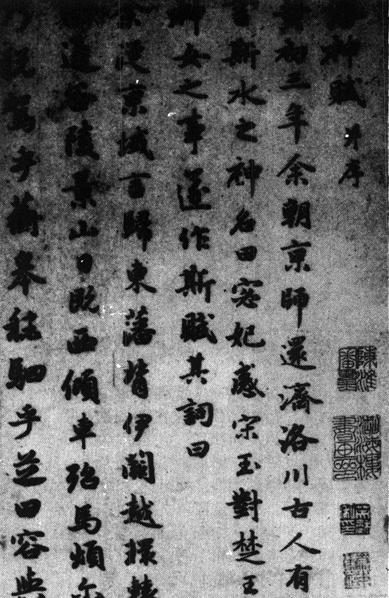 神賦并序
黃初三年余朝京師還濟洛川古人有
言斯水之神名曰宓妃感宋玉對楚王
神女之事遂作斯賦其詞曰
余從京域言歸東藩背伊闕越轘轅
通谷陵景山日既西傾車殆馬煩爾
乃稅駕乎蘅皋秣駟乎芝田容與